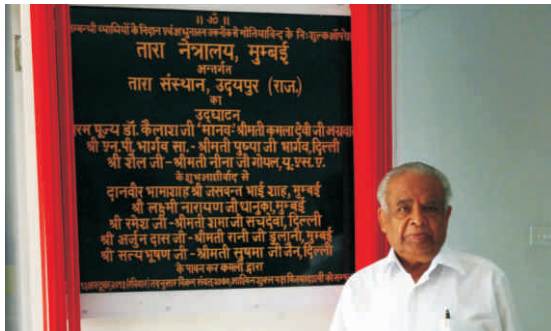 ॥ ॐ ॥
सम्बन्धी व्याधियों के निदान एवं अधुनातन तकनीक से मोतियाबिन्द के निःशुल्क ऑपरेशन
तारा नेत्रालय, मुम्बई
अन्तर्गत
तारा संस्थान, उदयपुर (राज.)
का
उद्घाटन
परम पूज्य डॉ. कैलाश जी "मानव"-श्रीमती कमला देवी जी अग्रवाल
श्री एन.पी. भार्गव सा.-श्रीमती पुष्पा जी भार्गव, दिल्ली
श्री शैल जी-श्रीमती नीना जी गोयल, यू.एस.ए.
के शुभआशीर्वाद से
दानवीर भामाशाह श्री जसवन्त भाई शाह, मुम्बई
श्री लक्ष्मी नारायण जी धानुका, मुम्बई
श्री रमेश जी-श्रीमती शमा जी सचदेवा, दिल्ली
श्री अर्जुन दास जी-श्रीमती रानी जी डुलानी, मुम्बई
श्री सत्य भूषण जी-श्रीमती सुषमा जी जैन, दिल्ली
के पावन कर कमलों द्वारा
विक्रम संवत् आश्विन शुक्ल पक्ष